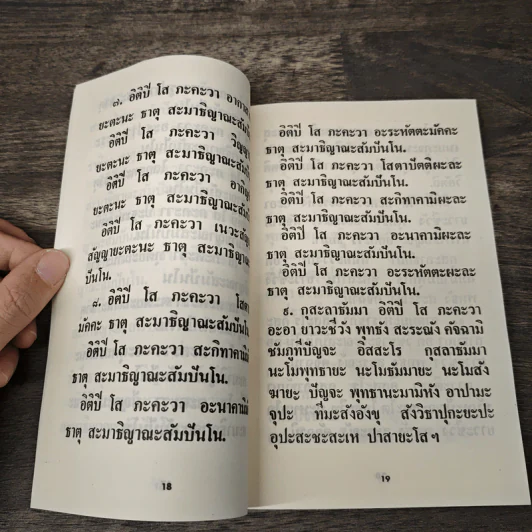 ๗. อิติปิ โส ภะคะวา
ยะตะนะ ธาตุ สะมาธิญาณะสัมปัน
อิติปิ โส ภะคะวา วิญญ
ยะตะนะ ธาตุ สะมาธิญาณะสัมปัน
อิติปิ โส ภะคะวา
ยะตะนะ ธาตุ สะมาธิญาณะสัมปัน
อิติปิ โส ภะคะวา เนวะสัญ
สัญญายะตะนะ ธาตุ สะมาธิญาณะ
ปันโน.
๘. อิติปิ โส ภะคะวา โสตา
มัคคะ ธาตุ สะมาธิญาณะสัมปันโน.
อิติปิ โส ภะคะวา สะกิทาคามิ
ธาตุ สะมาธิญาณะสัมปันโน.
อิติปิ โส ภะคะวา อะนาคามิ
ธาตุ สะมาธิญาณะสัมปันโน.
18
อิติปิ โส ภะคะวา อะระหัตตะมัคคะ
ธาตุ สะมาธิญาณะสัมปันโน.
อิติปิ โส ภะคะวา โสตาปัตติผะละ
ธาตุ สะมาธิญาณะสัมปันโน.
อิติปิ โส ภะคะวา สะกิทาคามิผะละ
ธาตุ สะมาธิญาณะสัมปันโน.
อิติปิ โส ภะคะวา อะนาคามิผะละ
ธาตุ สะมาธิญาณะสัมปันโน.
อิติปิ โส ภะคะวา อะระหัตตะผะละ
ธาตุ สะมาธิญาณะสัมปันโน.
๙. กุสะลาธัมมา อิติปิ โส ภะคะวา
อะอา ยาวะชีวัง พุทธัง สะระณัง คัจฉามิ
ชมภูทีปัญจะ อิสสะโร กุสลาธัมมา
นะโมพุทธายะ นะโมธัมมายะ นะโมสัง
ฆายะ ปัญจะ พุทธานะมามิหัง อาปามะ
จุปะ ทีมะสังอังขุ สังวิธาปุกะยะปะ
อุปะสะชะสะเห ปาสายะโส ฯ
19